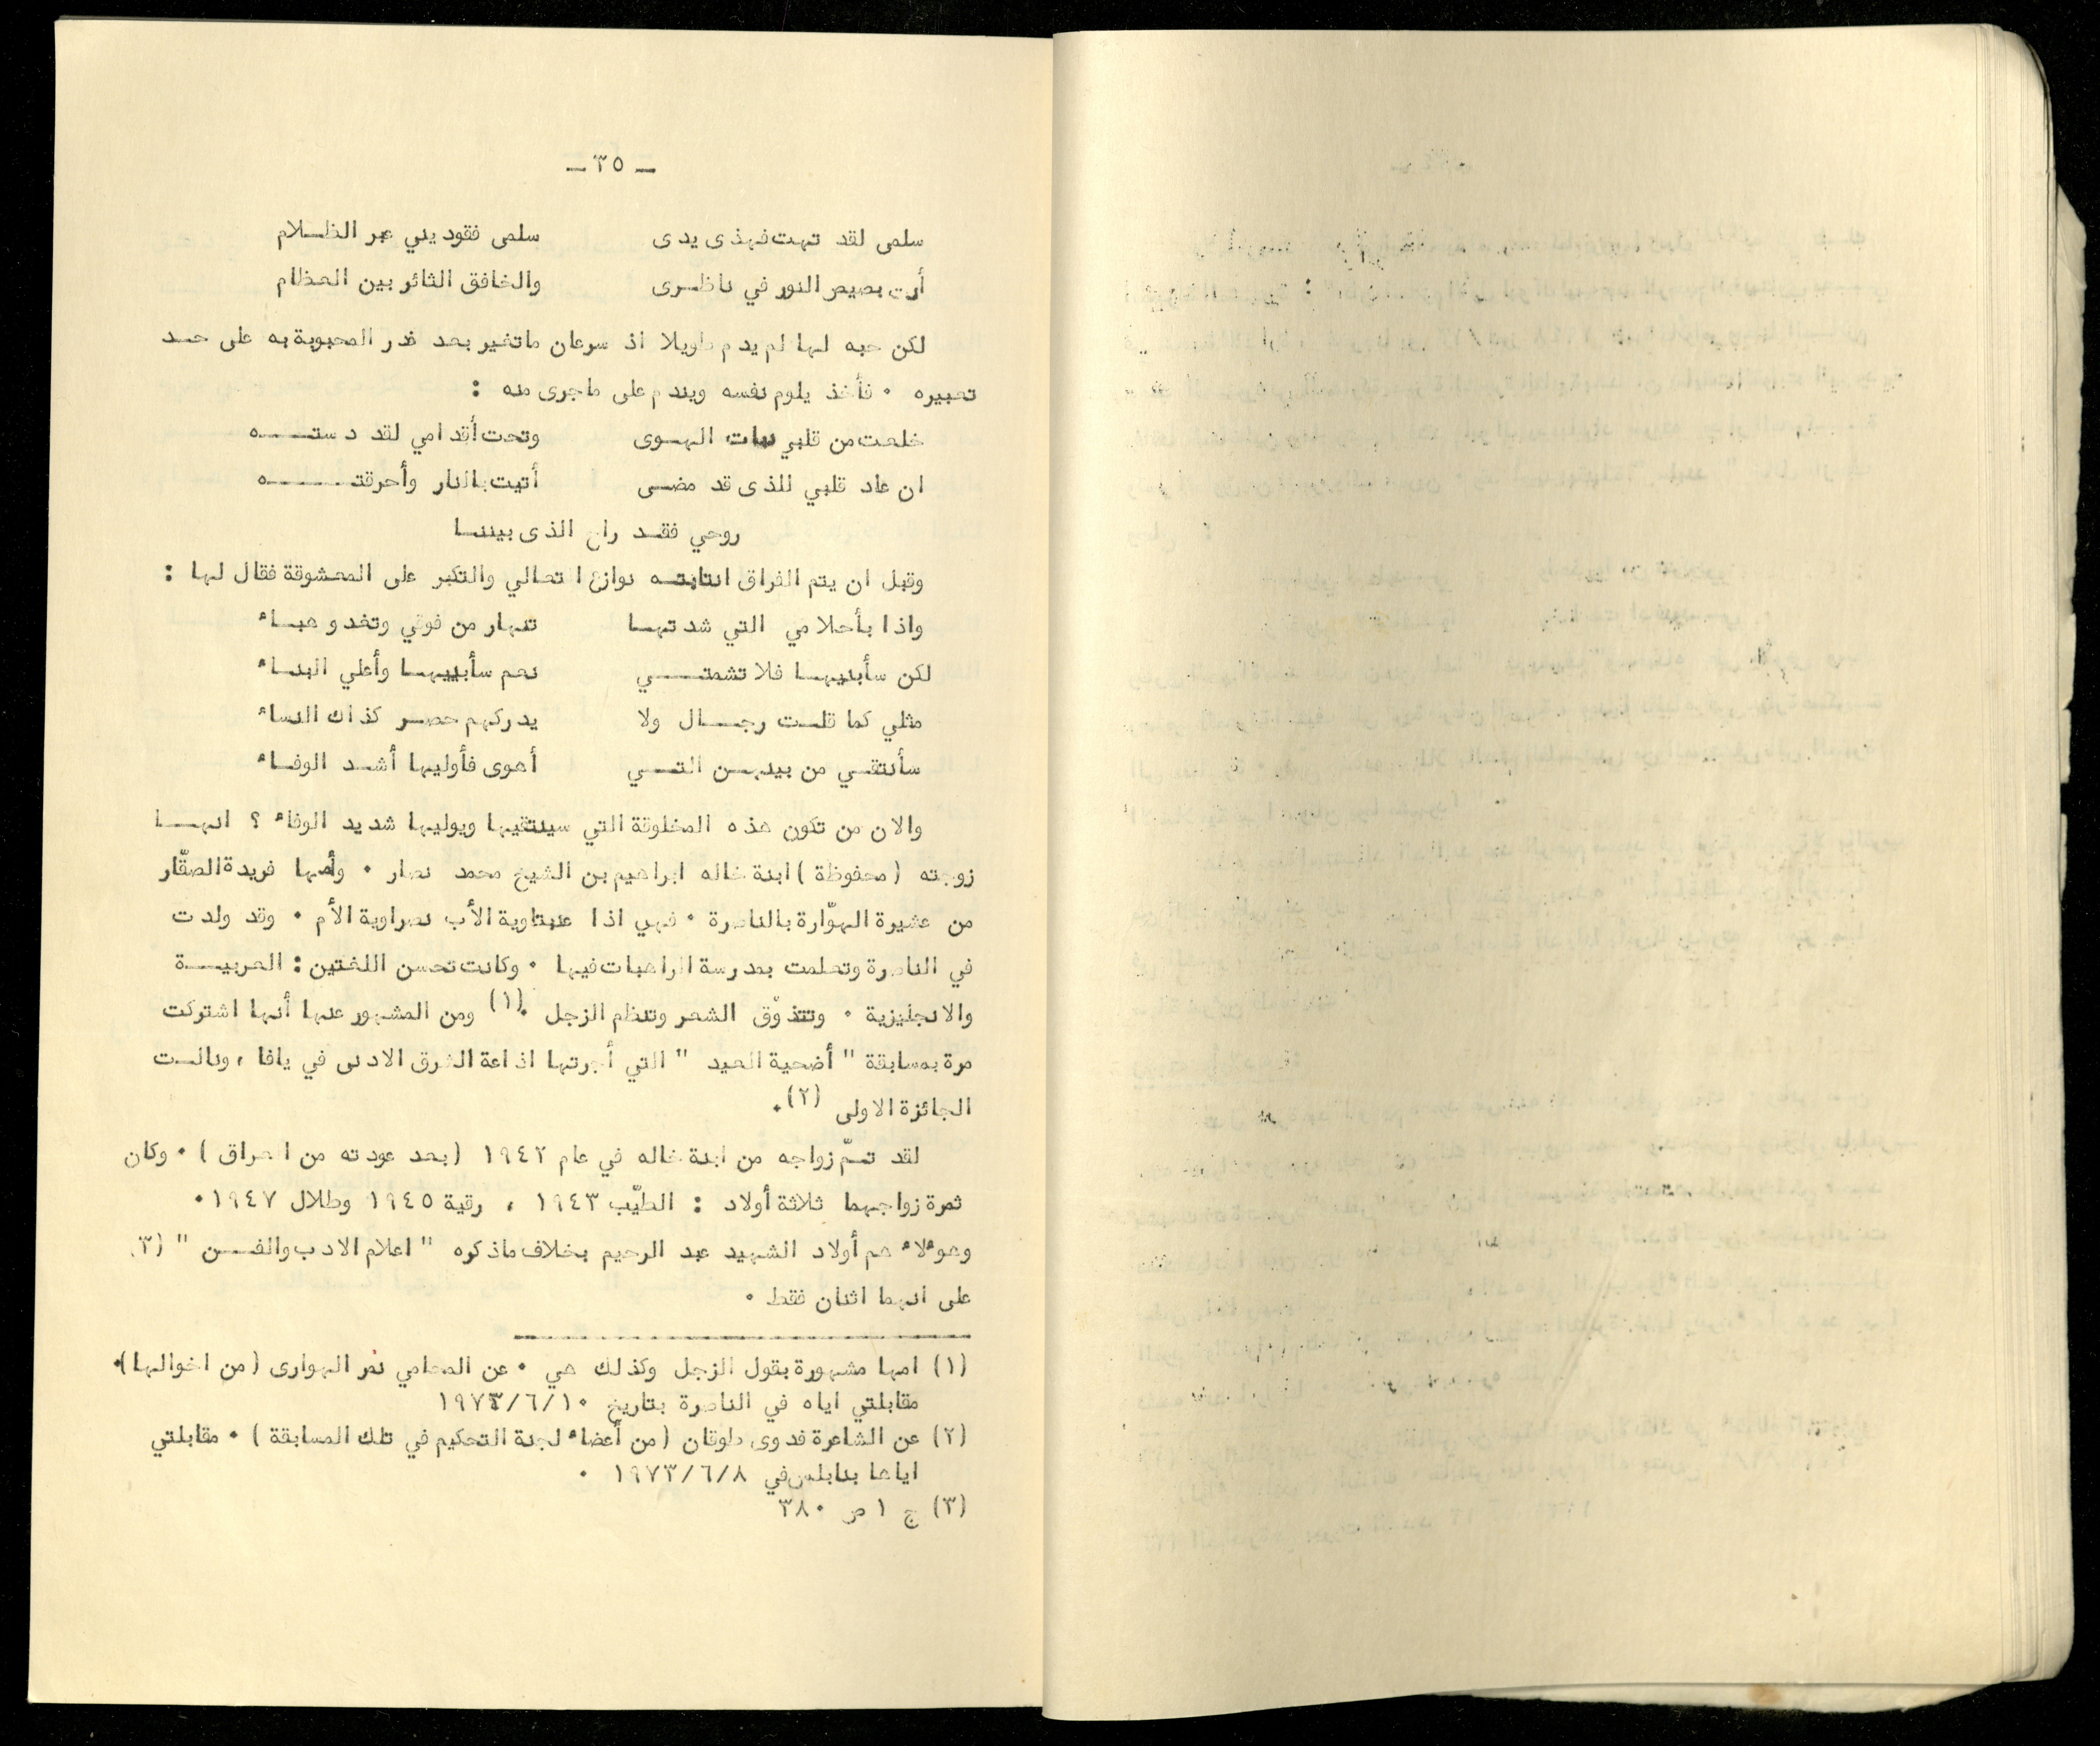 ـ ٣٥ ـ
سلمى لقد تهت فهذى يدى سلمى فقوديني عبر الظلام
أرت بصيص النور في ناظرى والخافق الثائر بين العظام
لكن حبه لها لم يدم طويلا اذ سرعان ماتغير بعد غدر المحبوبة به على حد
تعبيره ٠ فأخذ يلوم نفسه ويندم على ماجرى منه :
خلعت من قلبي نبات الهوى وتحت أقدامي لقد دسته
ان عاد قلبي للذى قد مضى أتيت بالنار وأحرقته
روحي فقد راح الذى بيننا
وقبل ان يتم الفراق انتابته نوازع التعالي والتكبر على المعشوقة فقال لها :
واذا بأحلامي التي شدتها تنهار من فوقي وتغدو هباء
لكن سأبنيها فلا تشمتي نعم سأبنيها وأعلي البناء
مثلي كما قلت رجال ولا يدركهم حصر كذاك النساء
سأنتقي من بينهن التي أهوى فأوليها أشد الوفاء
والان من تكون هذه المخلوقة التي سينتقيها ويوليها شديد الوفاء ؟ انها
زوجته (محفوظة) ابنة خاله ابراهيم بن الشيخ محمد نصار ٠ وأمها فريدة الصقّار
من عشيرة الهوّارة بالناصرة ٠ فهي اذا عنبتاوية الأب نصراوية الأم ٠ وقد ولدت
في الناصرة وتعلمت بمدرسة الراهبات فيها ٠ وكانت تحسن اللغتين : العربية
والانجليزية ٠ وتتذوّق الشعر وتنظم الزجل ٠(١) ومن المشهور عنها أنها اشتركت
مرة بمسابقة " أضحية العيد " التي أجرتها اذاعة الشرق الادنى في يافا ، ونالت
الجائزة الاولى (٢)٠
لقد تمّ زواجه من ابنة خاله في عام ١٩٤٢ (بعد عودته من العراق) ٠ وكان
ثمرة زواجهما ثلاثة أولاد : الطيّب ١٩٤٣ ، رقية ١٩٤٥ وطلال ١٩٤٧ ٠
وهؤلاء هم أولاد الشهيد عبد الرحيم بخلاف ماذكره " اعلام الادب والفن " (٣)
على انهما اثنان فقط ٠
(١) امها مشهورة بقول الزجل وكذلك هي ٠ عن المحامي نمر الهوارى (من اخوالها)٠
مقابلتي اياه في الناصرة بتاريخ ١٩٧٣/٦/١٠
(٢) عن الشاعرة فدوى طوقان (من أعضاء لجنة التحكيم في تلك المسابقة) ٠ مقابلتي
اياها بنابلس في ١٩٧٣/٦/٨ ٠
(٣) ج ١ ص ٣٨٠